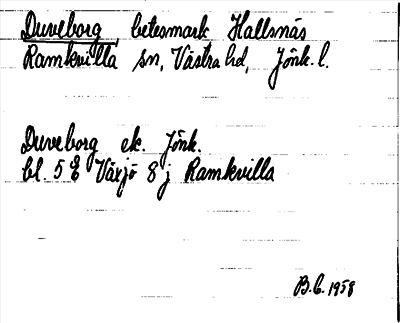 Duveborg, betesmark Hallsnäs
Ramkvilla sn, Västra hd, Jönk. l.
Duveborg ek. Jönk.
bl. 5 E Växjö 8 j Ramkvilla
B.C. 1958